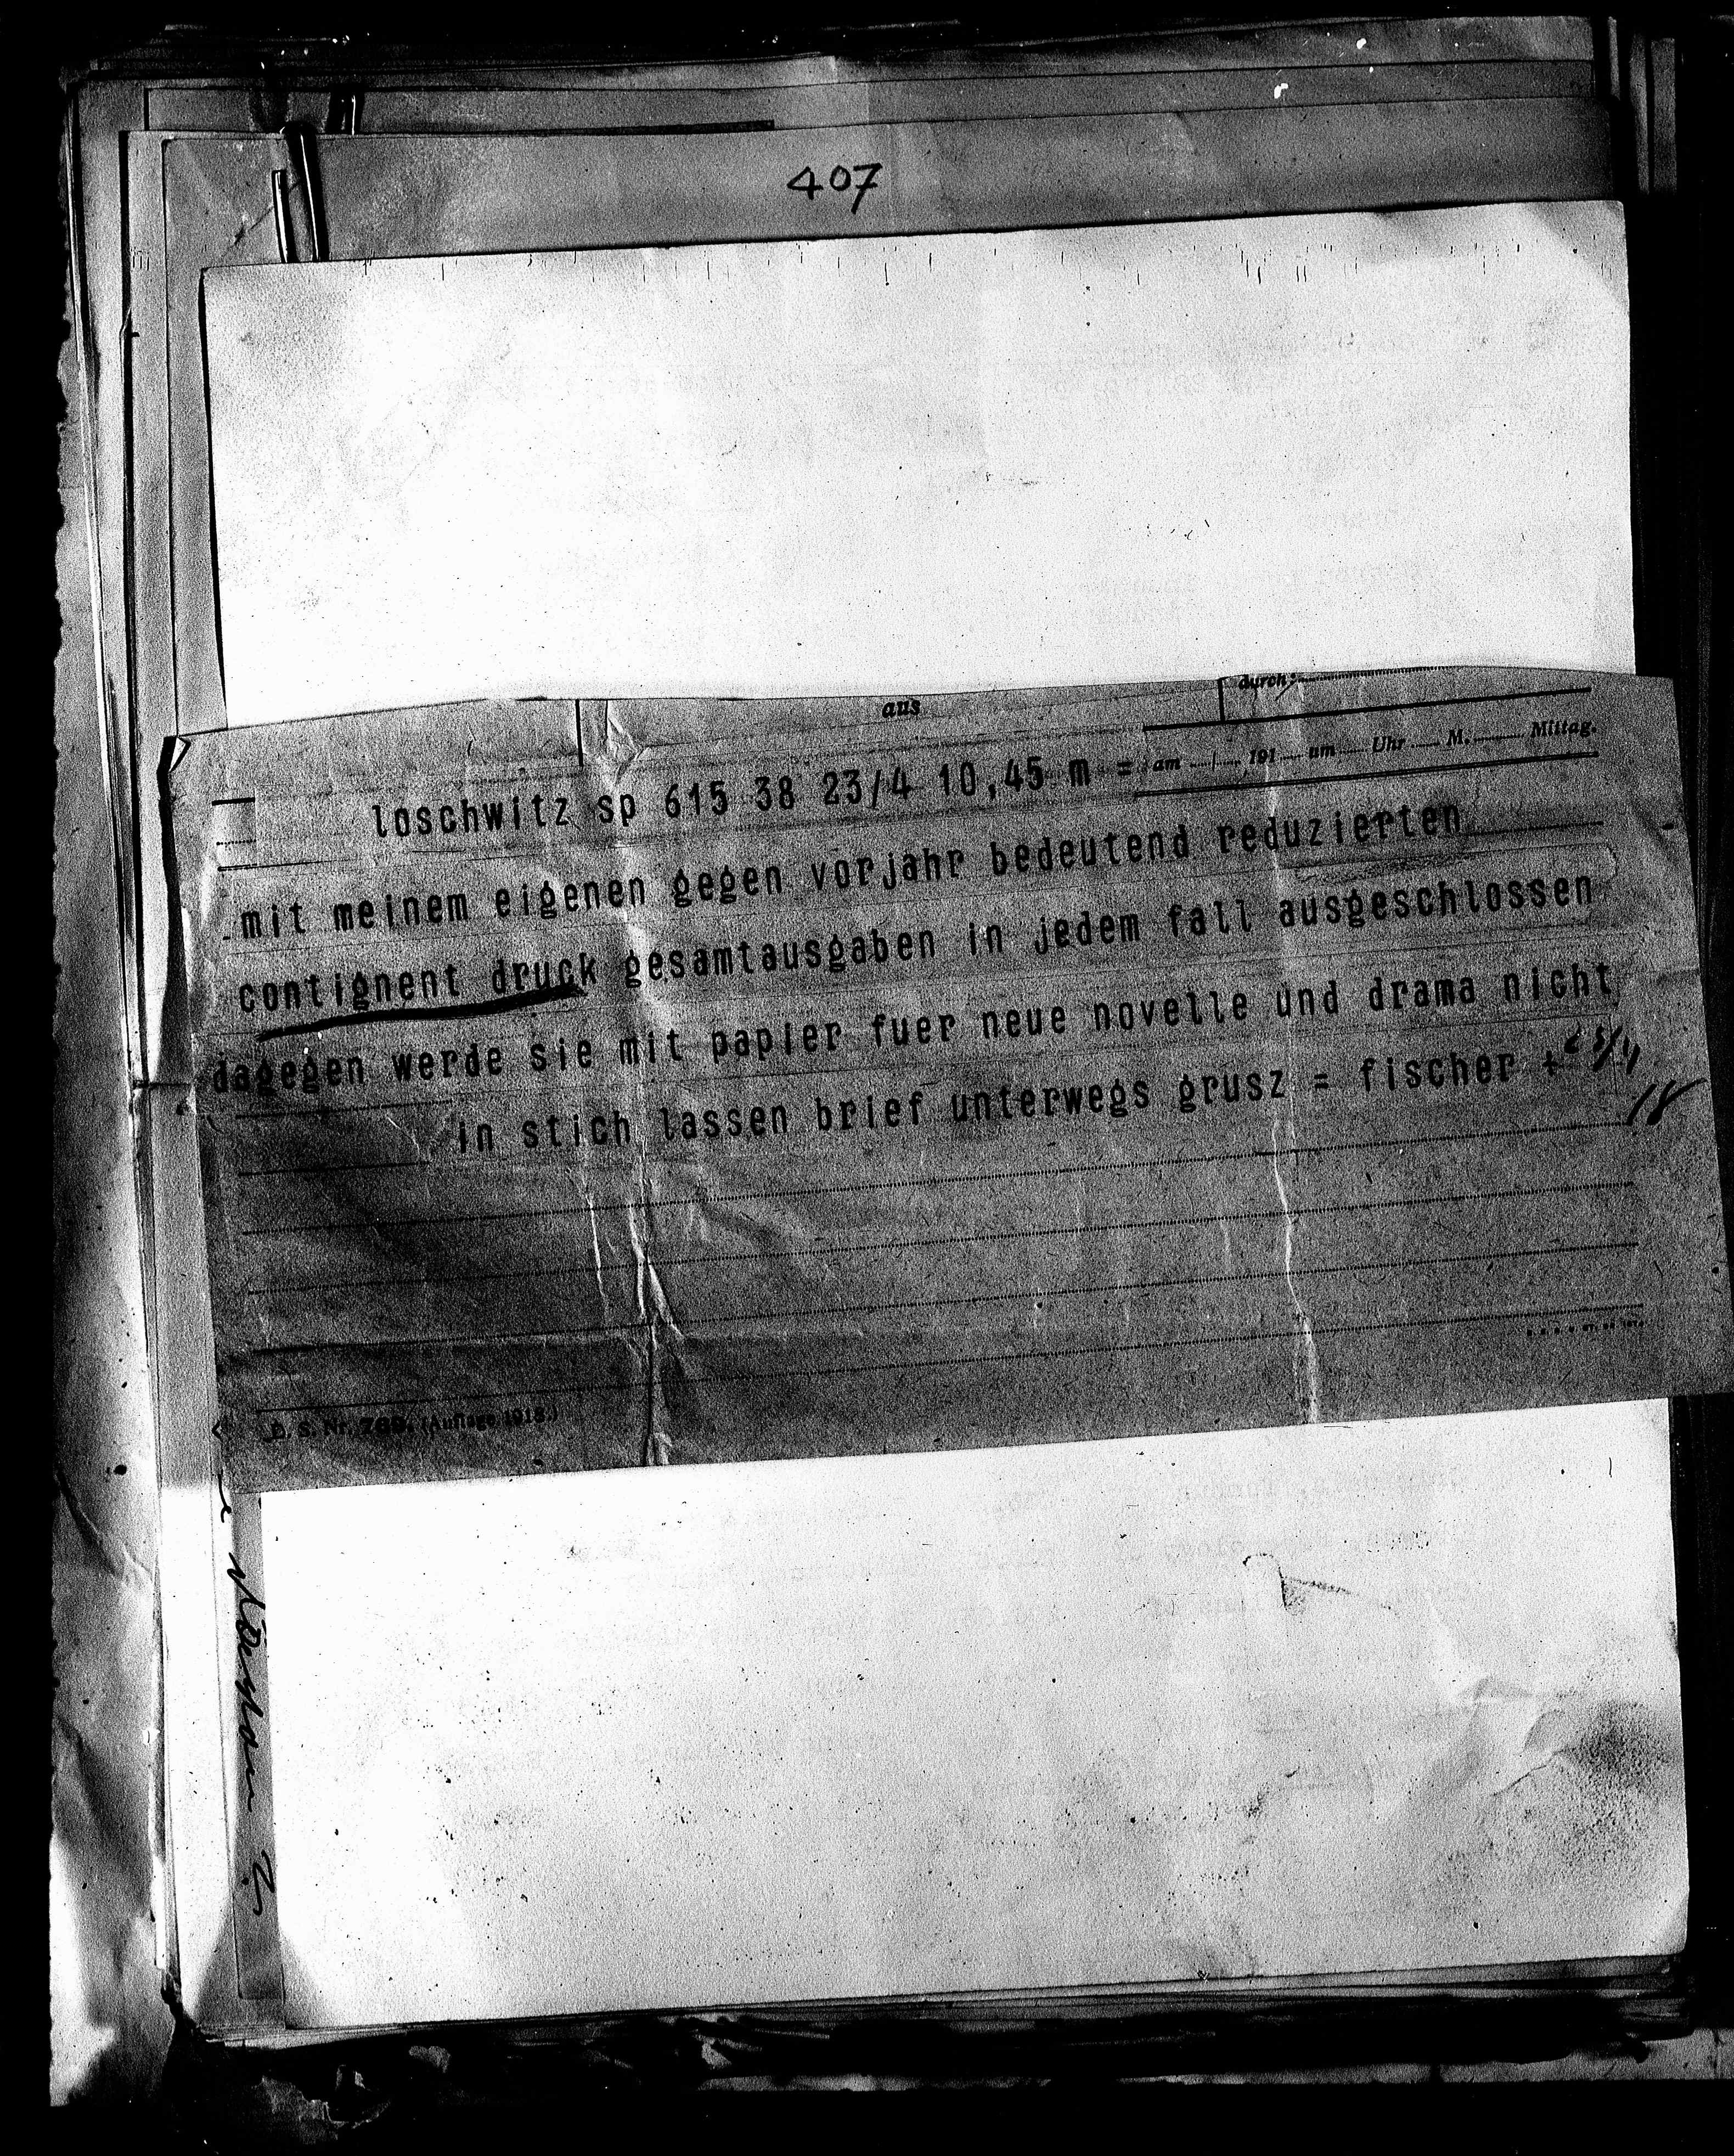 407
aus
durch:
am / 191 um Uhr M. Mittag.
loschwitz sp 615 38 23/4 10,45 m =
mit meinem eigenen gegen vorjahr bedeutend reduzierten
contignent druck gesamtausgaben in jedem fall ausgeschlossen
dagegen werde sie mit papier fuer neue novelle und drama nicht
in stich lassen brief unterwegs grusz = fischer + 23/4
18
D. S. Nr. 769. (Auflage 1918.)